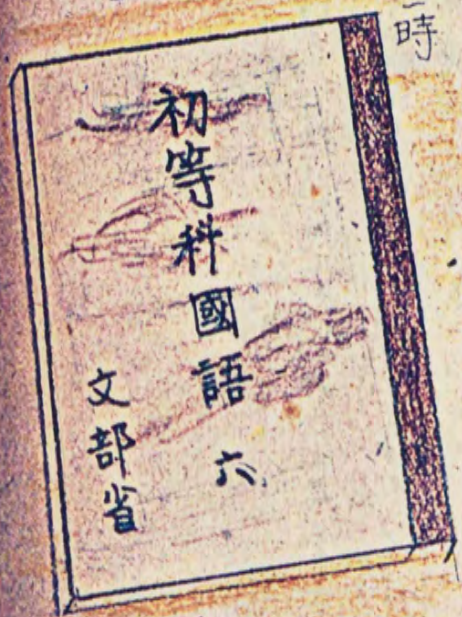 時
初等科國語 六
文部省